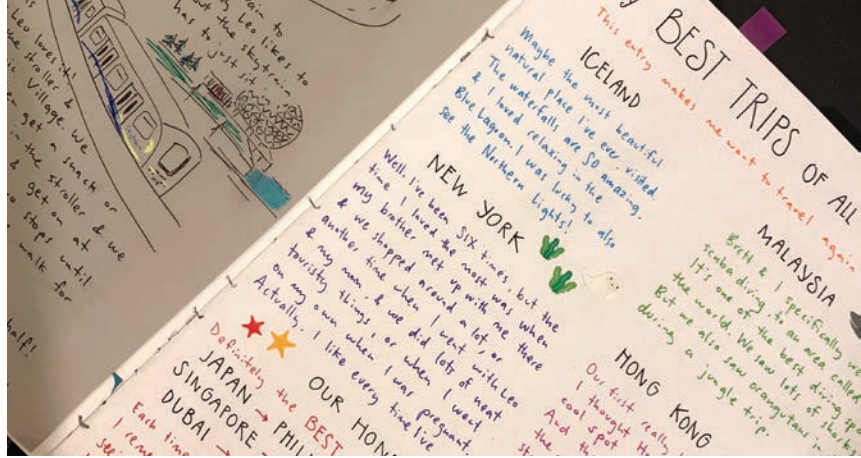 rain to
Leo likes to
the skytrain
has to just sit
Leo loves it!
stroller &
Village. We
get a snack or
in the stroller & we
& get on at
stops until
walk for
half!
BEST TRIPS OF ALL
This entry makes me want to travel again
ICELAND
Maybe the most beautiful
natural place I've ever visited.
The waterfalls are SO amazing.
& I loved relaxing in the
Blue Lagoon. I was lucky to also
see the Northern Lights!
NEW YORK
Well, I've been SIX times, but the
time I loved the most was when
my brother met up with me there
& we shopped around a lot, or
another time when I went with Leo
& my mom & we did lots of neat
touristy things, or when I went
on my own when I was pregnant.
Actually, I like every time I've
MALAYSIA
Brett & I specifically we
scuba diving to an area called
It's one of the best diving sp
the world. We saw lots of shark
But we also saw orangutans in
during a jungle trip.
HONG KONG
Our first really
I thought H
cool spot
And th
the
st
OUR HON
Definitely the BEST
JAPAN → PHIL
SINGAPORE →
DUBAI →
Each time
I reme
see